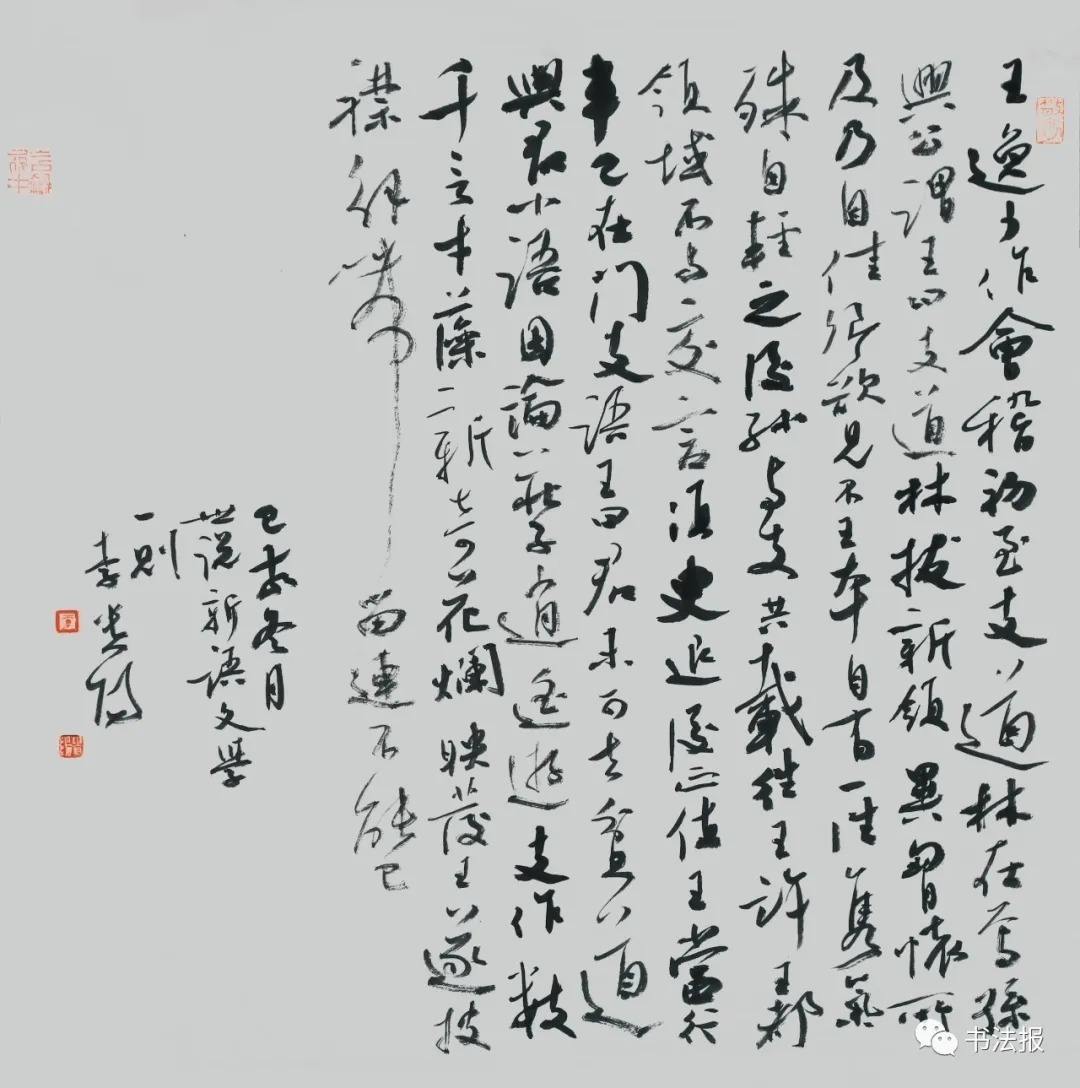 王逸少作會稽初至支道林在焉孫
興公謂王曰支道林拔新領異胷懷所
及乃自佳卿欲見不王本自有一往雋氣
殊自輕之後孫与支共載往王許王都
領域不与交言須臾退後正值王當行
車已在門支語王曰君未可去貧道
與君小語因論莊子逍遙遊支作數
千言才藻新奇花爛映發王遂披
襟解帶留連不能已
己亥冬月
世説新語文學
一則
李
书法报